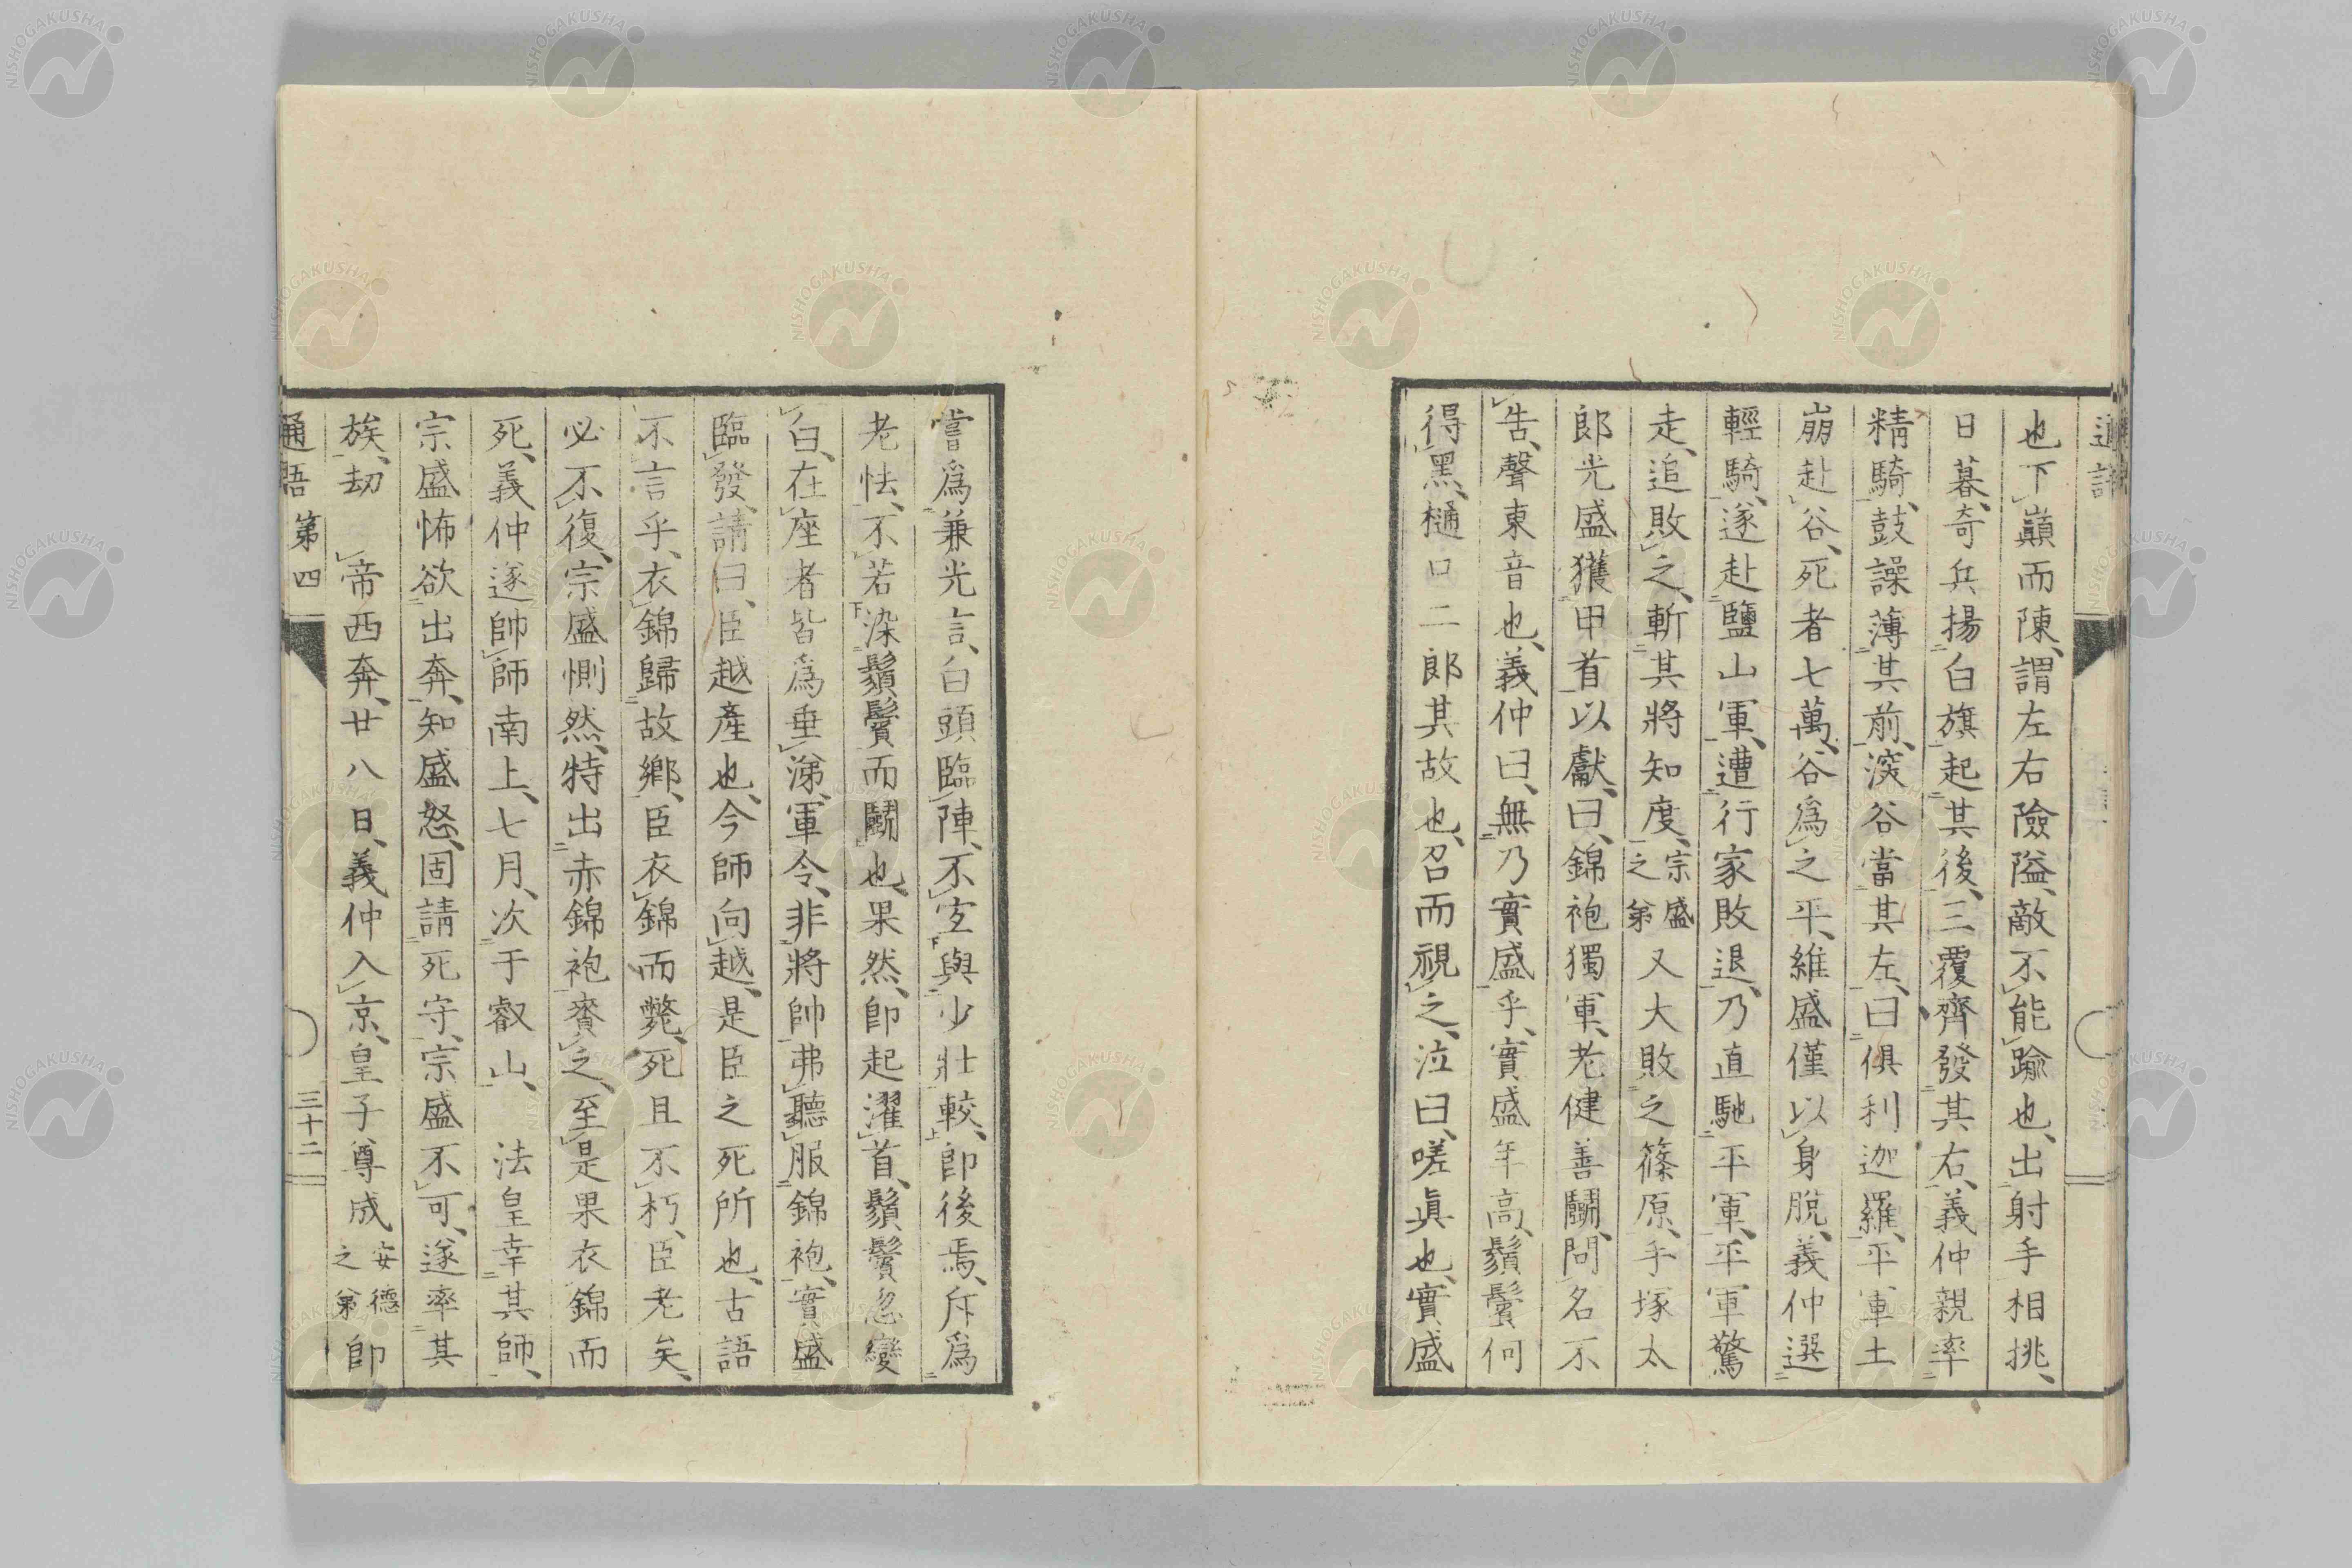 也下巓而陳、謂左右險隘、敵不能踰也、出射手相挑、
日暮、奇兵揚白旗起其後、三覆齊發其右、義仲親率
精騎、鼓譟薄其前、深谷當其左、曰俱利迦羅、平軍土
崩赴谷、死者七萬、谷爲之平、維盛僅以身脫、義仲選
輕騎、遂赴鹽山軍、遭行家敗退、乃直馳平軍、平軍驚
走、追敗之、斬其將知度、宗盛之弟又大敗之篠原、手塚太
郎光盛獲甲首以獻、曰、錦袍獨軍、老健善鬭、問名不
告、聲東音也、義仲曰、無乃實盛乎、實盛年高、鬚鬢何
得黑、樋口二郎其故也、召而視之、泣曰、嗟眞也、實盛
嘗爲兼光言、白頭臨陣、不宐與少壯較、卽後焉、斥爲
老怯、不若染鬚鬢而鬭也、果然、卽起濯首、鬚鬢忽變
白、在座者皆爲垂涕、軍令、非將帥弗聽服錦袍、實盛
臨發、請曰、臣越產也、今師向越、是臣之死所也、古語
不言乎、衣錦歸故鄉、臣衣錦而斃、死且不朽、臣老矣、
必不復、宗盛惻然、特出赤錦袍賚之、至是果衣錦而
死、義仲遂帥師南上、七月、次于叡山、法皇幸其師、
宗盛怖欲出奔、知盛怒、固請死守、宗盛不可、遂率其
族、劫帝西奔、廿八日、義仲入京、皇子尊成安德之弟卽
通語 第四 三十二
NISHOGAKUSHA